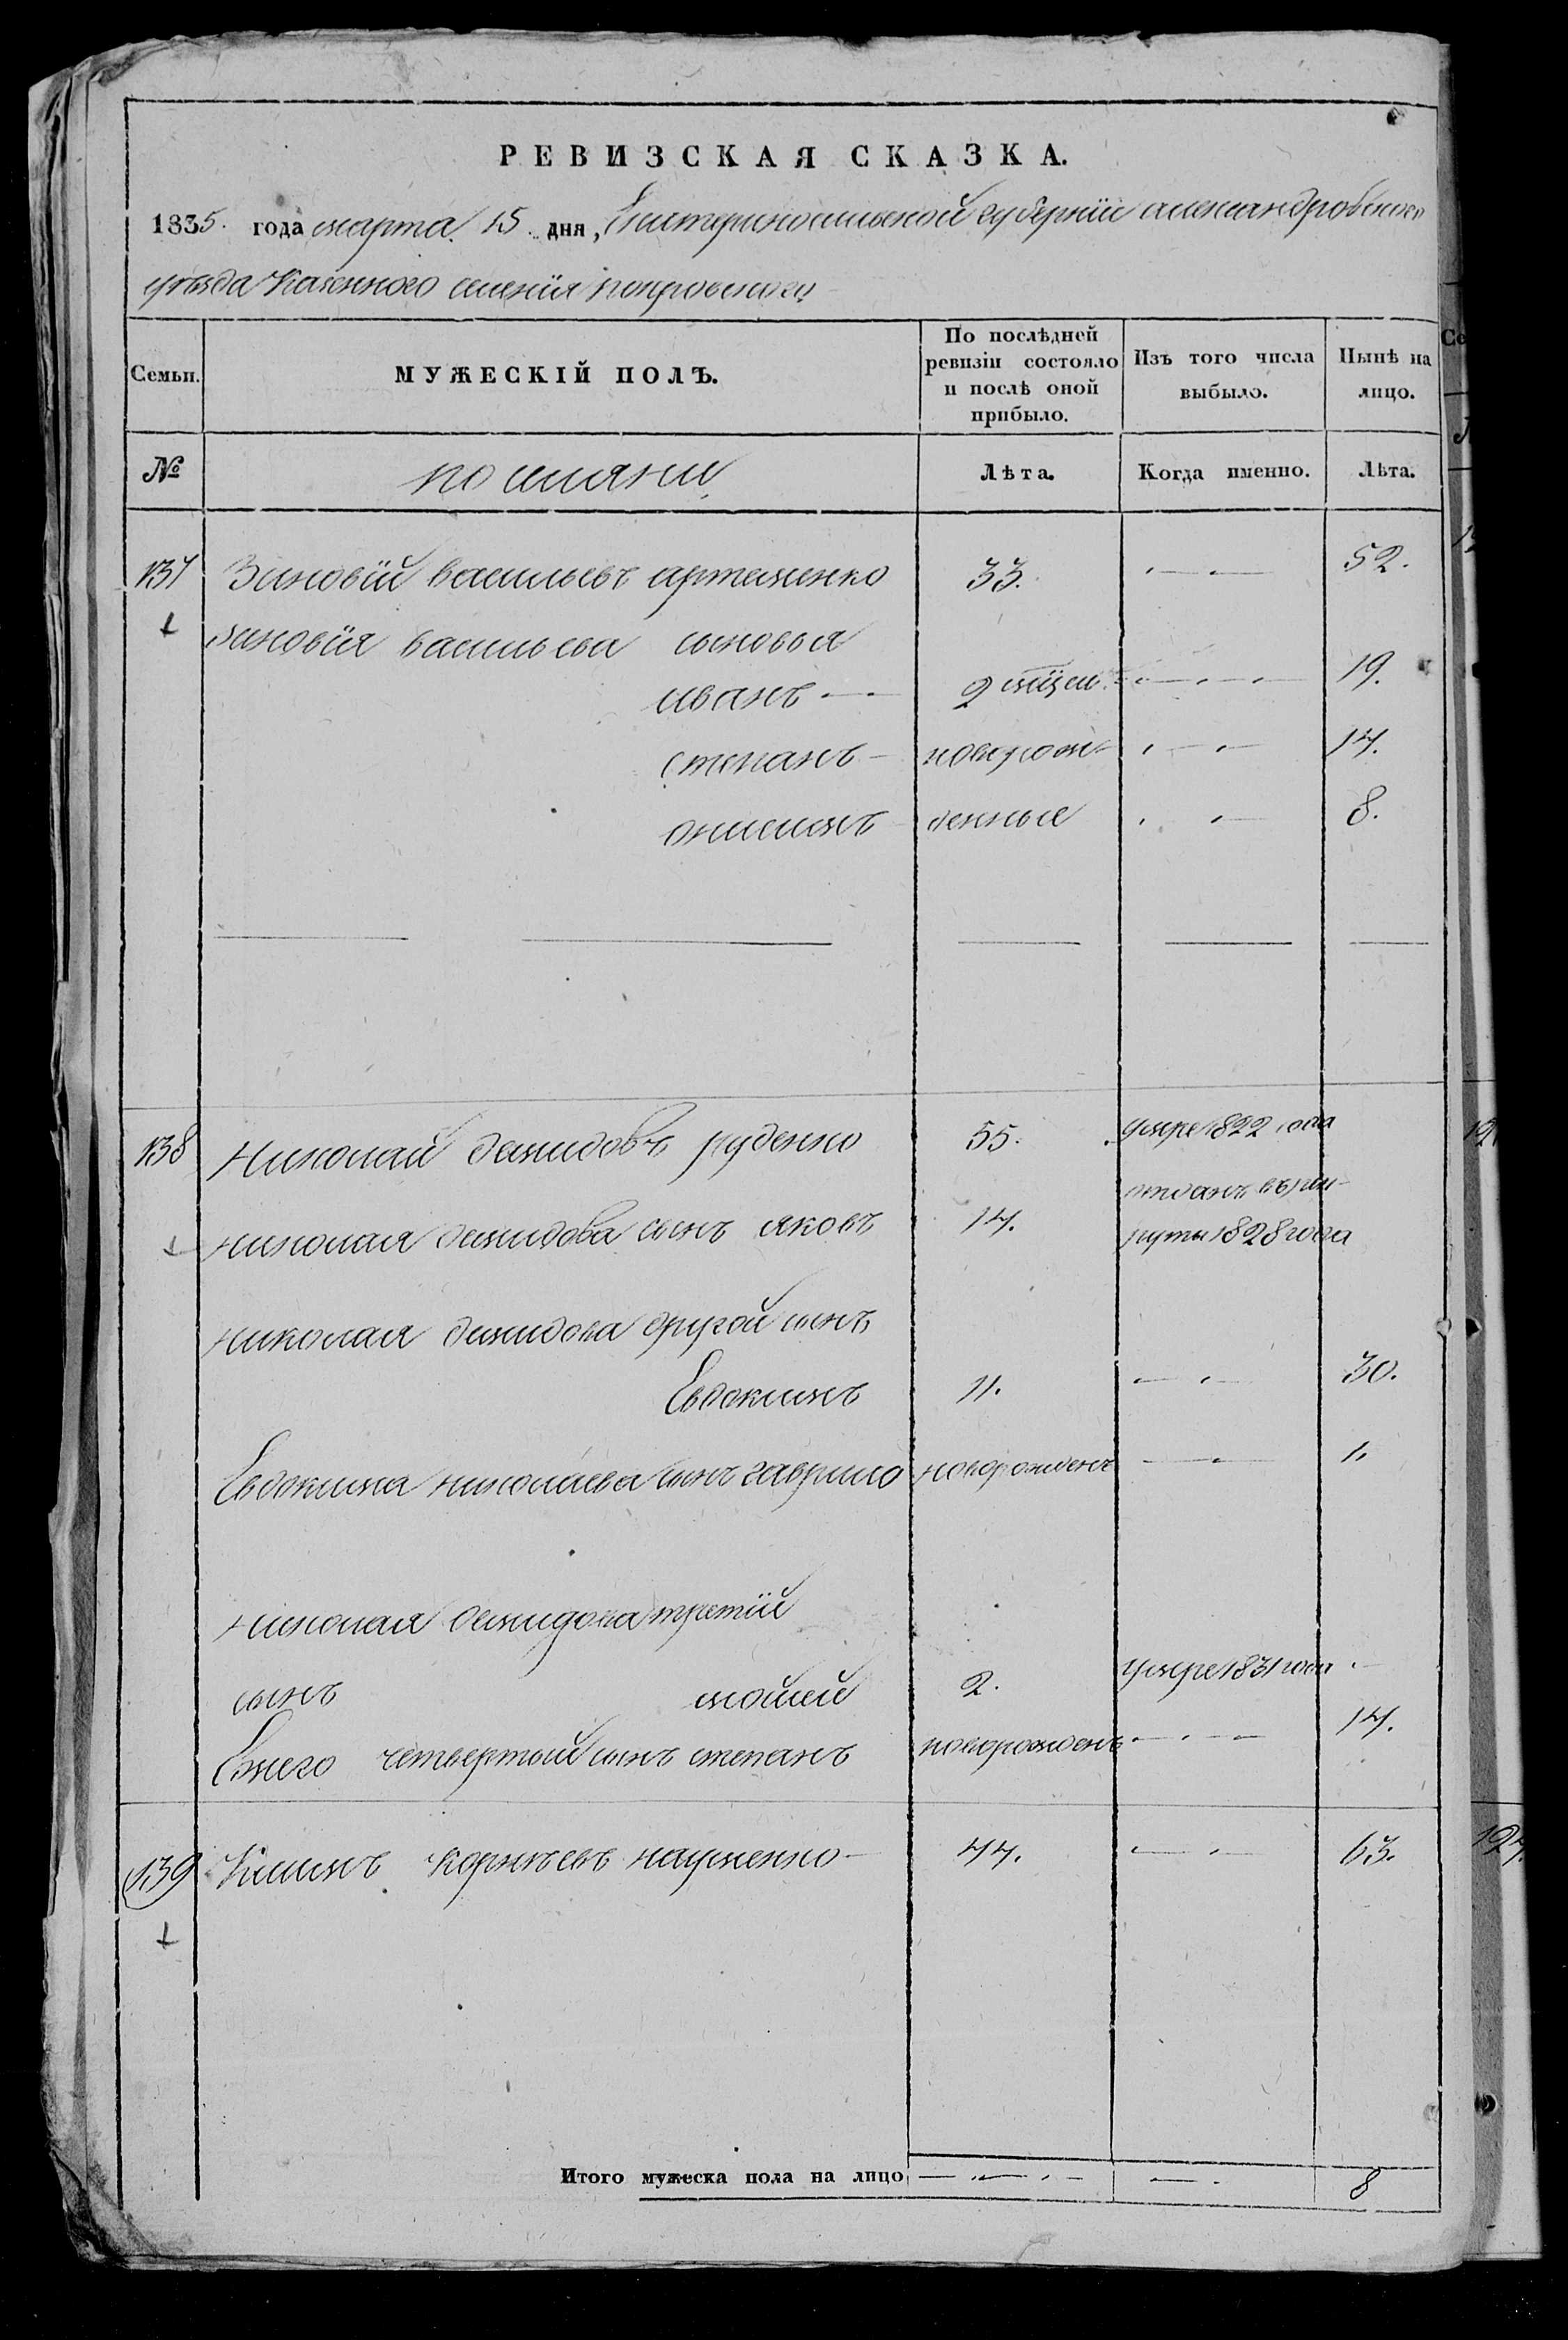 РЕВИЗСКАЯ СКАЗКА.
1835. года марта 15. дня, Екатеринославской губернїи александровского
уѣзда Казенного селенїя покровского
Семьи. МУЖЕСКІЙ ПОЛЪ. По послѣдней ревизіи состояло и послѣ оной прибыло. Изъ того числа выбыло. Нынѣ на лицо.
№ поселяне Лѣта. Когда именно. Лѣта.
137 Зиновїй васильевъ артеменко 33. 52.
зиновїя васильева сыновья
иванъ 2 19.
степанъ новорож- 14.
онисимъ денные 8.
138 Николай демидовъ руденко 55. умре 1822 года
николая демидова сынъ яковъ 14. отданъ въ рек-
руты 1828 года
николая демидова другой сынъ
Евдокимъ 11. 30.
Евдокима николаева сынъ гаврило новорожденъ 1.
николая демидова третїй
сынъ мойсей 2. умре 1831 года
Ево четвертый сынъ степанъ новорожденъ 14.
139 Климъ корнѣевъ науменко 44. 63.
Итого мужеска пола на лицо 8